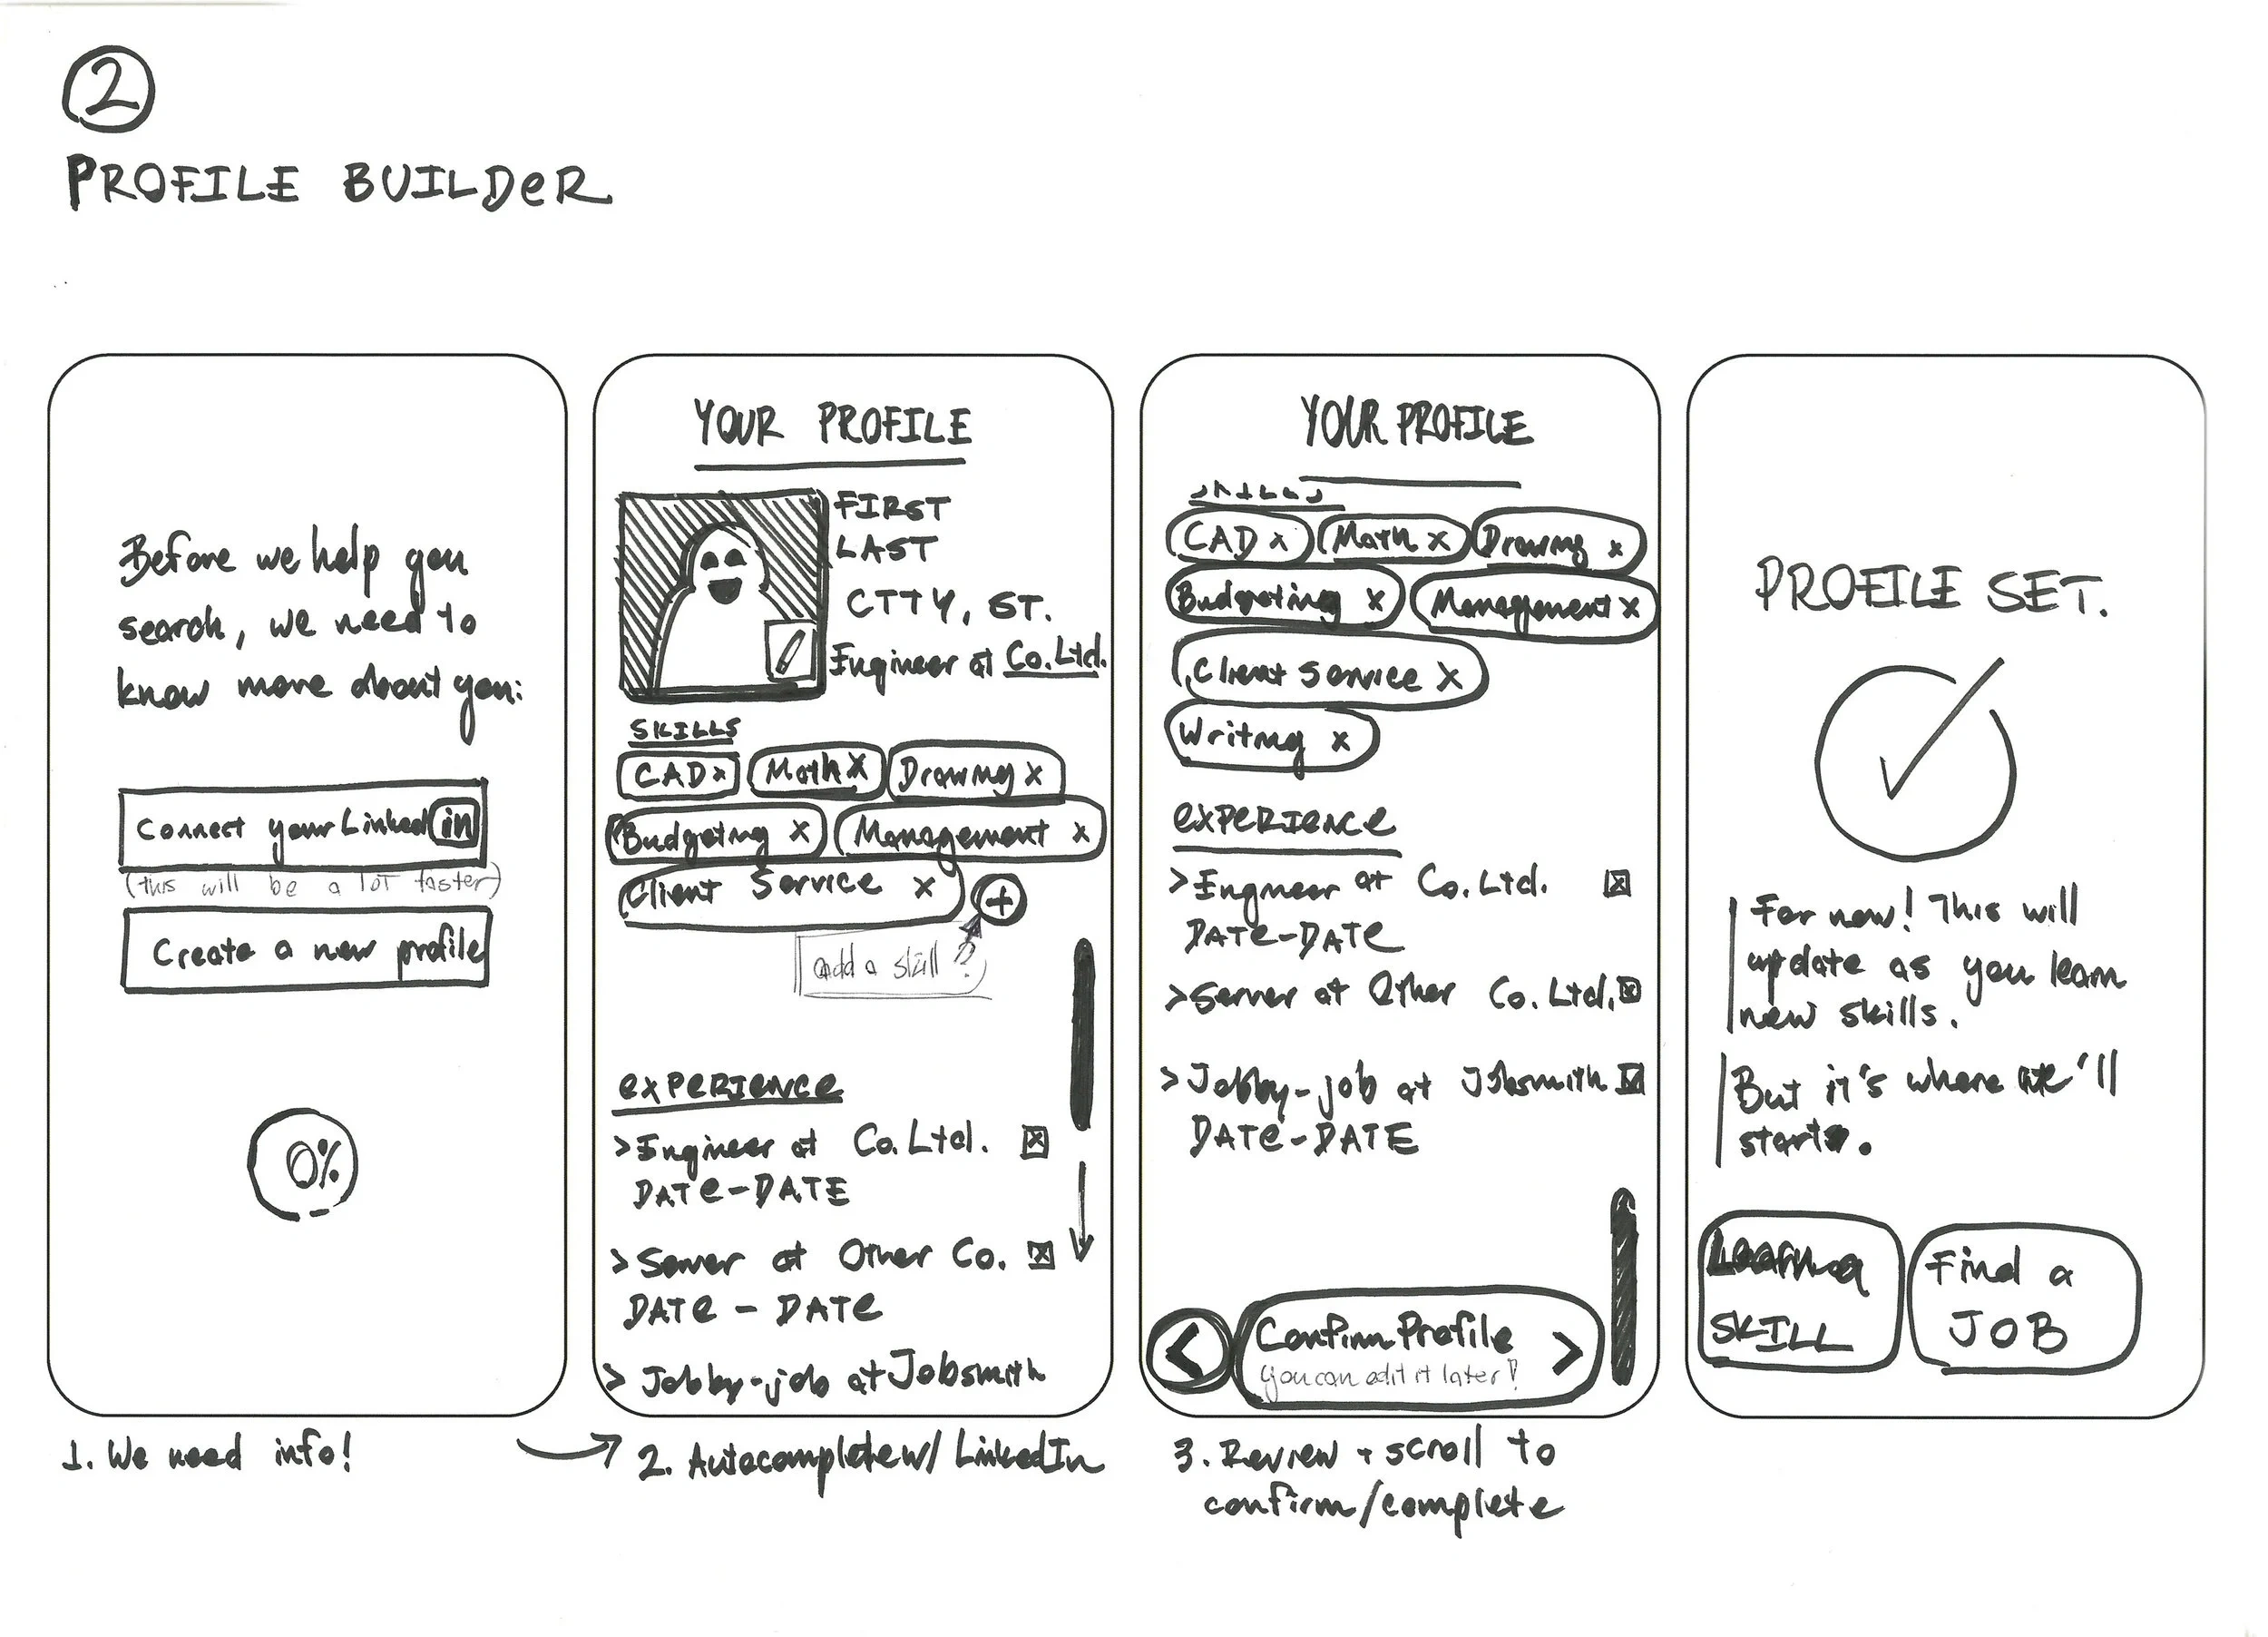 2
PROFILE BUILDER
Before we help you
search, we need to
know more about you:
Connect your Linked in
(this will be a LOT faster)
Create a new profile
0%
1. We need info!
YOUR PROFILE
FIRST
LAST
CITY, ST.
Engineer at Co. Ltd.
SKILLS
CAD x Math x Drawing x
Budgeting x Management x
Client Service x +
add a skill?
EXPERIENCE
> Engineer at Co. Ltd. x
DATE-DATE
> Server at Other Co. x
DATE - DATE
> Jobby-job at Jobsmith
2. Autocomplete w/ LinkedIn
YOUR PROFILE
SKILLS
CAD x Math x Drawing x
Budgeting x Management x
Client Service x
Writing x
EXPERIENCE
> Engineer at Co. Ltd. x
DATE-DATE
> Server at Other Co. Ltd. x
> Jobby-job at Jobsmith x
DATE-DATE
< Confirm Profile >
you can edit it later!
3. Review + scroll to
confirm/complete
PROFILE SET.
For now! This will
update as you learn
new skills.
But it's where we'll
start.
Learn a
SKILL
Find a
JOB